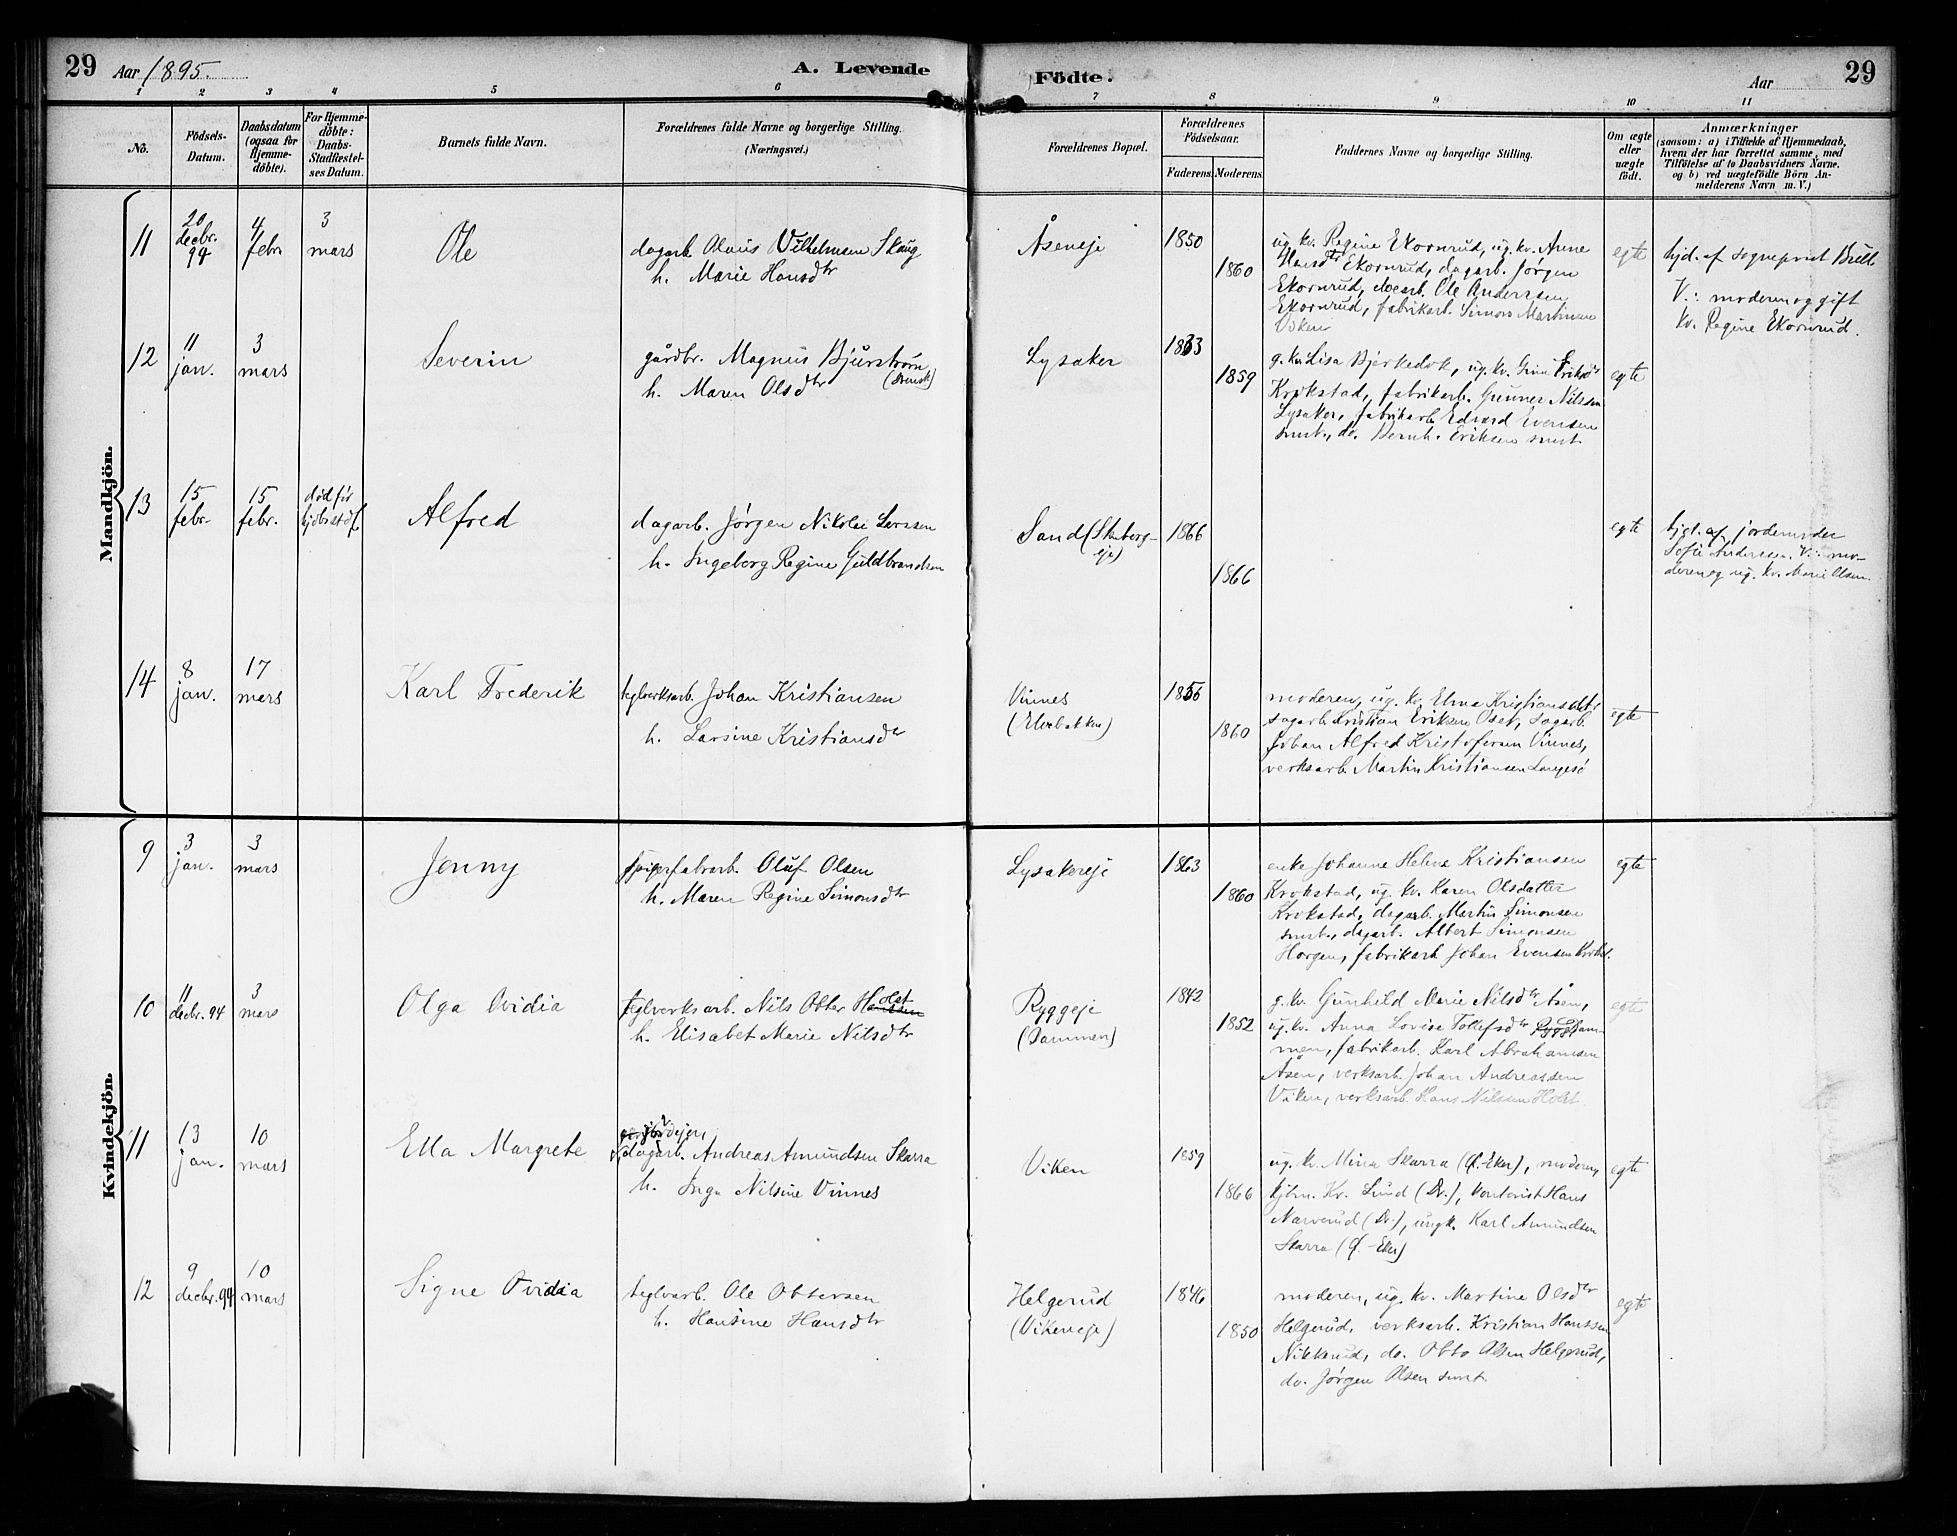 29 Aar 1895. A. Levende Födte. Aar 29
1 2 3 4 5 6 7 8 9 10 11
Nö.
Födsels-
Datum.
Daabsdatum
(ogsaa for
Hjemme-
döbte).
For Hjemme-
döbte:
Daabs-
Stadfæstel-
ses Datum.
Barnets fulde Navn.
Forældrenes fulde Navne og borgerlige Stilling.
(Næringsvei.)
Forældrenes Bopæl.
Forældrenes
Födselsaar.
Faderens. Moderens.
Faddernes Navne og borgerlige Stilling.
Om ægte
eller
uægte
födt.
Anmærkninger
(saasom: a) i Tilfælde af Hjemmedaab,
hvem der har forrettet samme, med
Tilföielse af to Daabsvidners Navne,
og b) ved uægtefödte Börn An-
melderens Navn m. V.)
Mandkjön.
11
20
decbr.
94
4
febr
3
mars
Ole
dagarb. Vilhelmsen Skaug
h. Marie Hansdtr
Åseneje
1850
1860
ug. kv. Regine Ekornrud, ug. kv. Anne
Hansdtr Ekornrud, dagarb. Jørgen
Ekornrud, Ole Anderssen
Ekornrud, fabrikarb. Simon
Viken
egte
hjd. af sogneprest
V.: moderen og gift
kv. Regine Ekornrud.
12
11
jan.
3
mars
Severin
gårdbr. Magnus Bjurstrøm
(svensk)
h. Maren Olsdtr
Lysaker
1833
1859
g. kv. Lisa ug. kv. Eriksdtr
Krokstad, fabrikarb. Gunner Nilssen
Lysaker, fabrikarb. Edvard Evensen
smst., do. Bernh. Eriksen smst.
egte
13
15
febr.
15
febr.
død før
Alfred
dagarb. Jørgen Nikolai Larssen
h. Ingeborg Regine Guldbrandsen
Sand (Skeberg-
eje)
1866
1866
egte
hjd. af jordemoder
Sofie Andersen. V.: mo-
deren og ug. kv. Marie Olsen.
14
8
jan.
17
mars
Karl Frederik
teglverksarb. Johan Kristiansen
h. Larsine Kristiansdtr
Vinnes
(Elvebakken)
1856
1860
moderen, ug. kv. Elma Kristiansdtr
dagarb. Kristian Eriksen Oset, dagarb.
Johan Alfred Kristofersen Vinnes,
verksarb. Martin Kristiansen Langesø
egte
Kvindekjön.
9
3
jan.
3
mars
Jenny
spigerfabarb. Oluf Olsen
h. Maren Regine Simonsdtr
Lysakereje
1863
1860
enke Johanne Helene Kristiansen
Krokstad, ug. kv. Karen Olsdatter
Krokstad, dagarb. Martin Simonsen
smst., dagarb. Albert Simonsen
Horgen, fabrikarb. Johan Evensen Krokst.
egte
10
11
decbr. 94
3
mars
Olga Ovidia
teglverksarb. Nils Otter Holst
h. Elisabet Marie Nilsdtr
Ryggeje
(Dammen)
1842
1852
g. kv. Gunhild Marie Nilsdtr Åsen,
ug. kv. Anna Lovise Tollefsdtr Dam-
men, fabrikarb. Karl Abrahamsen
Åsen, verksarb. Johan Andreassen
Viken, verksarb. Hans Nilssen Holst
egte
11
13
jan.
10
mars
Ella Margrete
dagarb. Andreas Amundsen Skarra
h. Inga Nilsine Vinnes
Viken
1859
1866
ug. kv. Mina Skarra (Ø. Eker), moderen,
kjbm. Kr. Lund (Dr.), kontorist Hans
Narverud (Dr.), ungk. Karl Amundsen
Skarra (Ø.-Eker)
egte
12
9
decbr. 94
10
mars
Signe Ovidia
teglvarb. Ole Ottersen
h. Hansine Hansdtr
Helgerud
(Vikeneje)
1846
1850
moderen, ug. kv. Martine Olsdtr
Helgerud, verksarb. Kristian Hanssen
Nikkerud, do. Otto Olsen Helgerud,
do. Jørgen Olsen smst.
egte